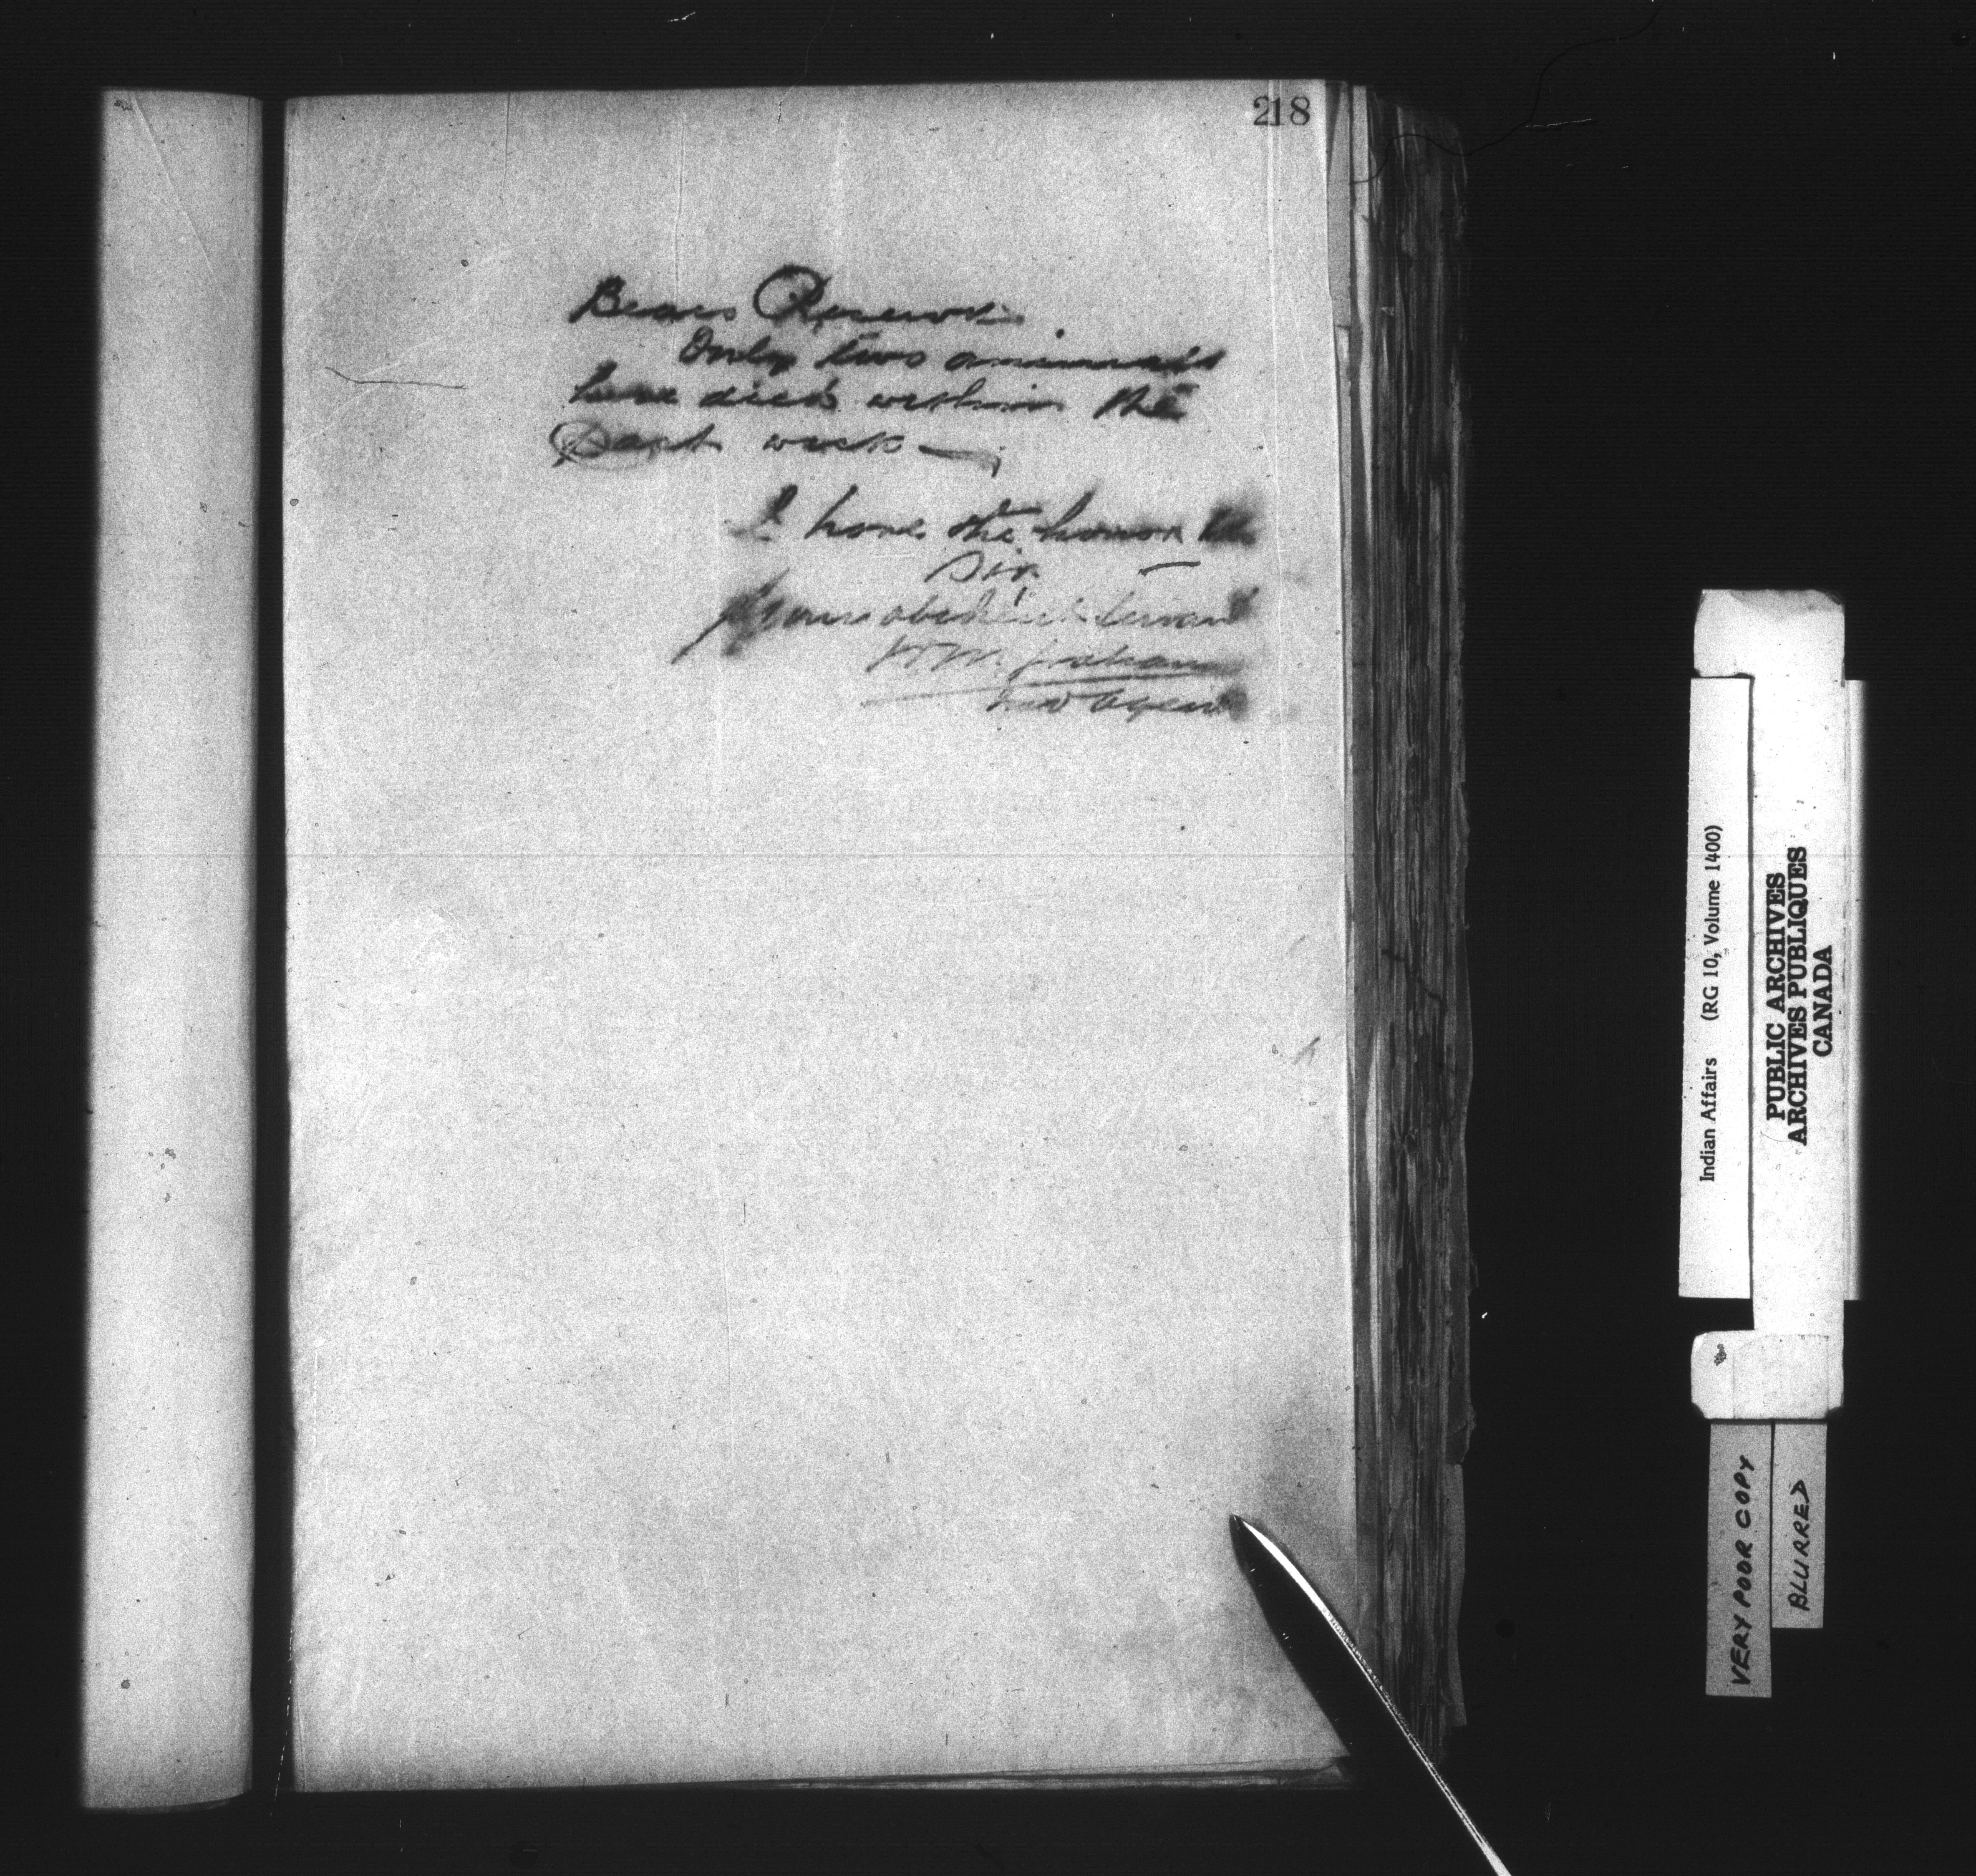 218
Bears Reserve.
Only two animals
have died within the
Past week —
I have the honor
Sir
Your obedient servant
W. M. Graham
Ind Agent
Indian Affairs (RG 10, Volume 1400)
PUBLIC ARCHIVES
ARCHIVES PUBLIQUES
CANADA
VERY POOR COPY
BLURRED